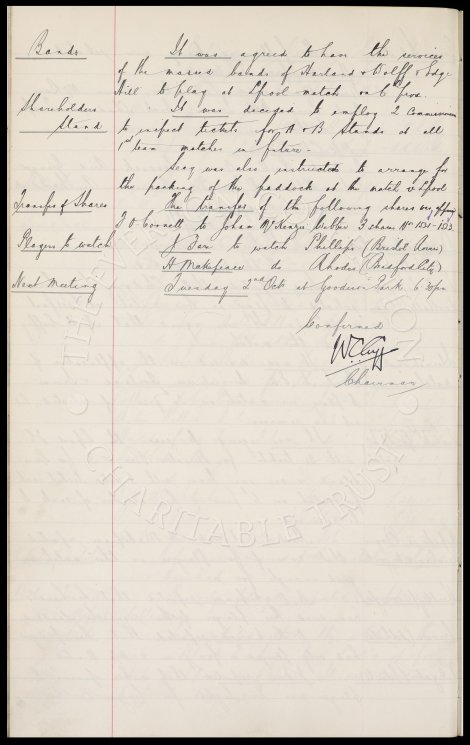 Bands
It was agreed to have the services
of the massed bands of Harland & Wolff & Edge
Hill to play at L'pool match on 6th prox.
Shareholders
Stand
It was decided to employ 2 Commissionaires
to inspect tickets for A & B Stands at all
1st team matches in future.
Secy was also instructed to arrange for
the packing of the paddock at the match v L'pool
Transfer of Shares
The transfer of the following shares were approved
to John McKenzie 3 shares
Players to watch
to watch Phillips (Bristol Rovers)
H Makepeace do Rhodes (Bedford City)
Next Meeting
Tuesday 2nd Oct at Goodison Park 6 30pm
Confirmed
W C Cuff
Chairman
CHARITABLE TRUST